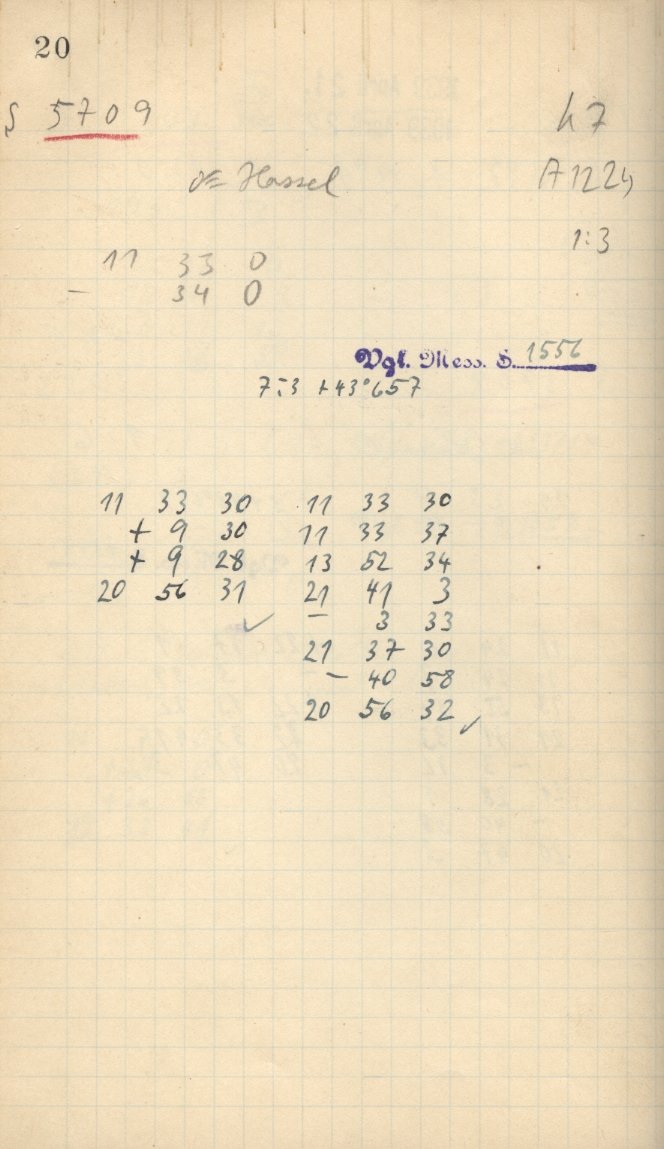 20
S 5709
h7
Hassel
A1224
1:3
11 33 0
- 34 0
Vgl. Mess. S. 1556
7:3 +43°657
11 33 30 11 33 30
+ 9 30 11 33 37
+ 9 28 13 52 34
20 56 31 21 41 3
✓ - 3 33
21 37 30
- 40 58
20 56 32 ✓